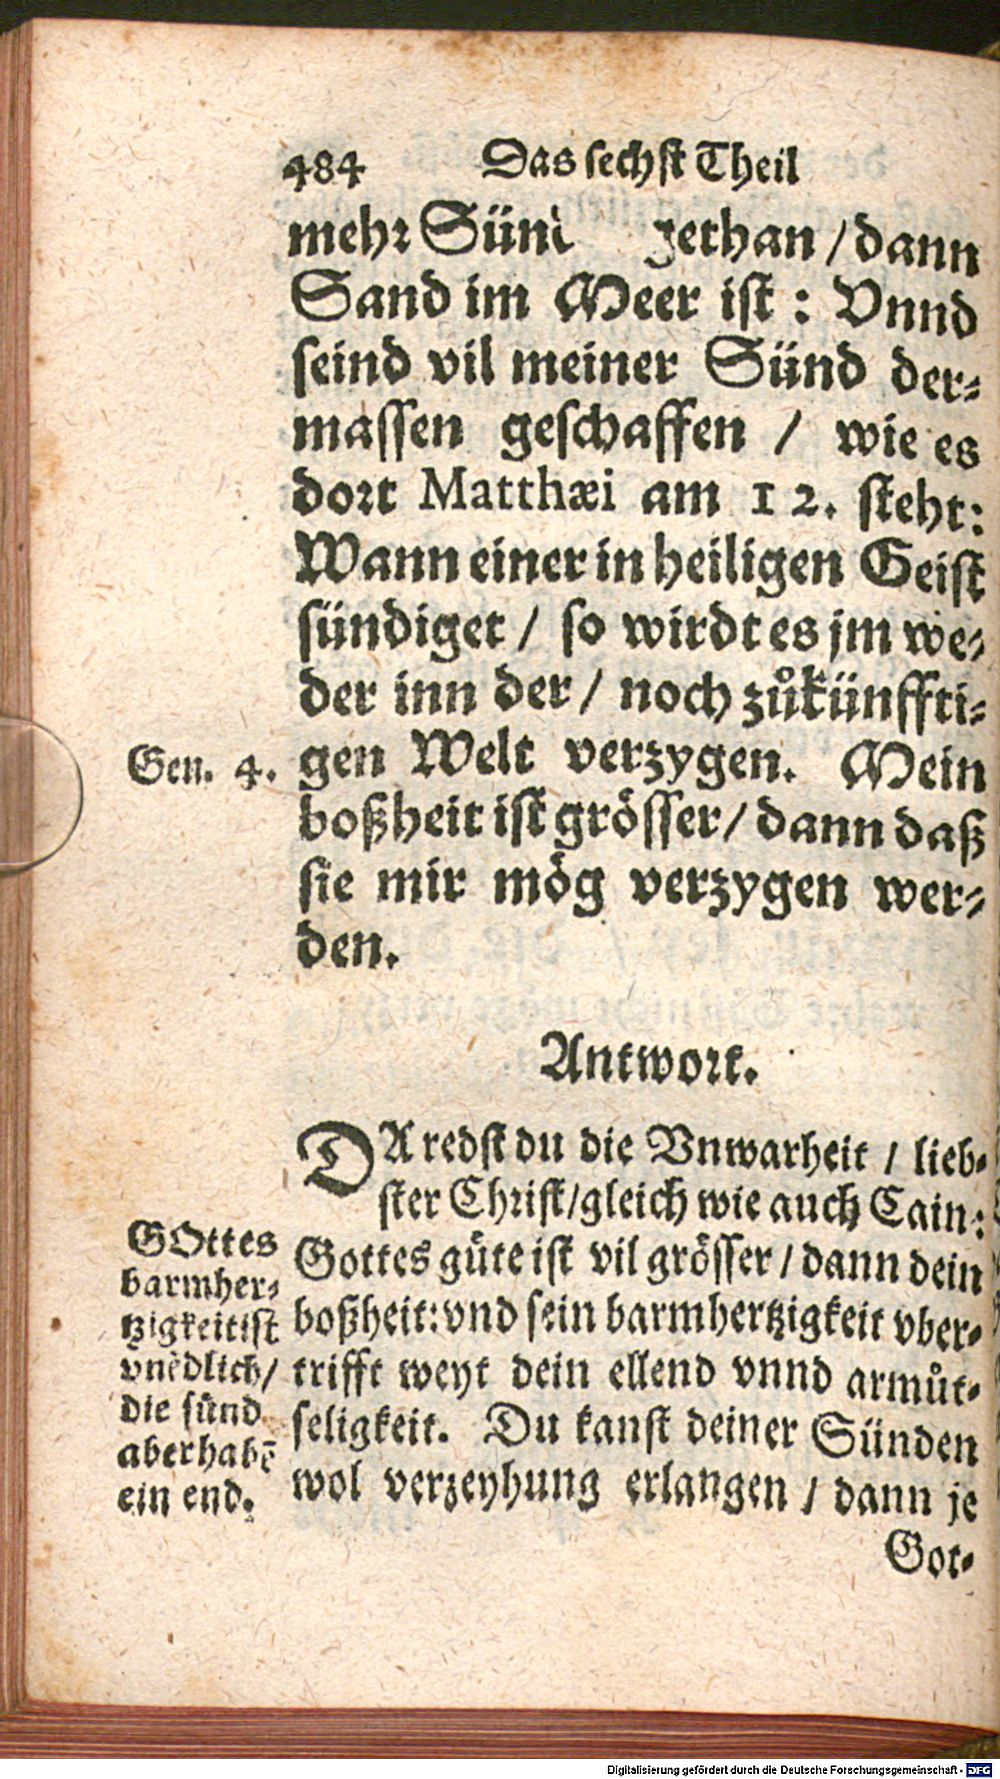 484 Das sechst Theil
mehr Sünd gethan / dann
Sand im Meer ist : Vnnd
seind vil meiner Sünd der-
massen geschaffen / wie es
dort Matthæi am 12. steht:
Wann einer in heiligen Geist
sündiget / so wirdt es jm we-
der inn der / noch zůkünffti-
Gen. 4.
gen Welt verzygen. Mein
boßheit ist grösser / dann daß
sie mir mög verzygen wer-
den.
Antwort.
DA redst du die Vnwarheit / lieb-
ster Christ / gleich wie auch Cain:
Gottes güte ist vil grösser / dann dein
boßheit: vnd sein barmhertzigkeit vber-
trifft weyt dein ellend vnnd armůt-
seligkeit. Du kanst deiner Sünden
wol verzeyhung erlangen / dann je
Got-
GOttes
barmher-
tzigkeit ist
vnēdlich /
die sünd
aber habē
ein end.
Digitalisierung gefördert durch die Deutsche Forschungsgemeinschaft - DFG